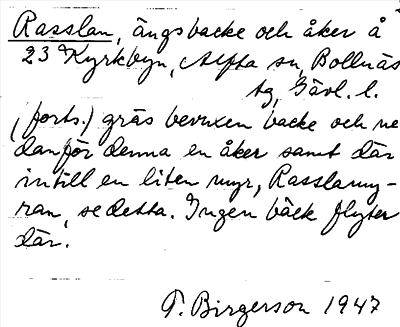 Rasslan, ängsbacke och åker å
23 Kyrkbyn, Alfta sn, Bollnäs
tg, Gävl. l.
(forts.) gräs bevuxen backe och ne
danför denna en åker samt där
intill en liten myr, Rasslamy-
ran, se detta. Ingen bäck flyter
där.
T. Birgerson 1947